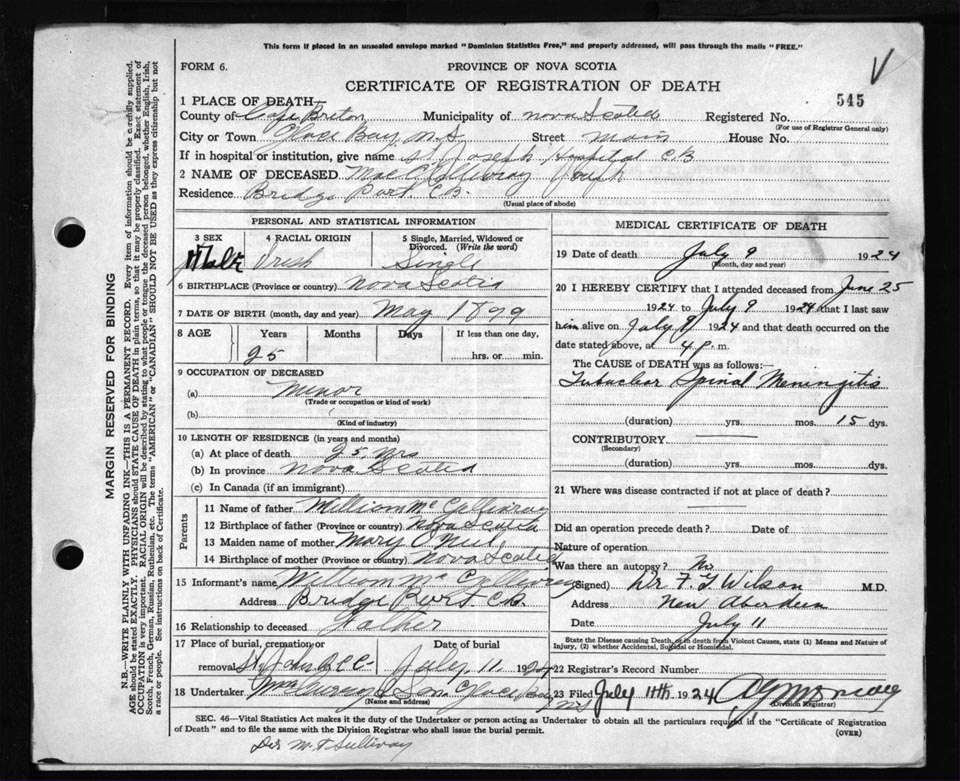 This form if placed in an unsealed envelope marked "Dominion Statistics Free," and properly addressed, will pass through the mails "FREE."
FORM 6. PROVINCE OF NOVA SCOTIA
CERTIFICATE OF REGISTRATION OF DEATH
545
1 PLACE OF DEATH
County of Cape Breton Municipality of Nova Scotia Registered No.
(For use of Registrar General only)
City or Town Glace Bay N.S Street Main House No.
If in hospital or institution, give name St Joseph Hospital CB
2 NAME OF DECEASED Joseph
Residence Bridge Port. CB.
(Usual place of abode)
PERSONAL AND STATISTICAL INFORMATION
3 SEX 4 RACIAL ORIGIN 5 Single, Married, Widowed or Divorced. (Write the word)
Male Irish Single
6 BIRTHPLACE (Province or country) Nova Scotia
7 DATE OF BIRTH (month, day and year) May 1899
8 AGE Years Months Days If less than one day,
25 hrs. or min.
9 OCCUPATION OF DECEASED
(a) Minor
(Trade or occupation or kind of work)
(b)
(Kind of industry)
10 LENGTH OF RESIDENCE (in years and months)
(a) At place of death 25 Yrs
(b) In province Nova Scotia
(c) In Canada (if an immigrant)
Parents
11 Name of father William McGillivray
12 Birthplace of father (Province or country) Nova Scotia
13 Maiden name of mother Mary O'Neil
14 Birthplace of mother (Province or country) Nova Scotia
15 Informant's name William McGillivray
Address Bridge Port. CB.
16 Relationship to deceased Father
17 Place of burial, cremation or removal Date of burial
July 11 1924
18 Undertaker & Son Glace Bay NS
(Name and address)
MEDICAL CERTIFICATE OF DEATH
19 Date of death July 9 1924
(Month, day and year)
20 I HEREBY CERTIFY that I attended deceased from June 25
1924 to July 9 1924 that I last saw
him alive on July 9 1924 and that death occurred on
date stated above, at 4 P. m.
The CAUSE OF DEATH was as follows:—
Tubucular Spinal Meningitis
(duration) yrs. mos. 15 dys.
CONTRIBUTORY
(Secondary)
(duration) yrs. mos. dys.
21 Where was disease contracted if not at place of death?
Did an operation precede death? Date of
Nature of operation
Was there an autopsy? No
(Signed) Dr. F. J Wilson M.D.
Address New Aberdeen
Date July 11
State the Disease causing Death, or in death from Violent Causes, state (1) Means and Nature of
Injury, (2) whether Accidental, Suicidal or Homicidal.
22 Registrar's Record Number
23 Filed July 11th 1924
(Division Registrar)
SEC. 46—Vital Statistics Act makes it the duty of the Undertaker or person acting as Undertaker to obtain all the particulars required in the "Certificate of Registration
of Death" and to file the same with the Division Registrar who shall issue the burial permit.
(OVER)
MARGIN RESERVED FOR BINDING
N.B.—WRITE PLAINLY WITH UNFADING INK—THIS IS A PERMANENT RECORD. Every item of information should be carefully supplied.
AGE should be stated EXACTLY. PHYSICIANS should STATE CAUSE OF DEATH in plain terms, so that it may be properly classified. Exact statement of
OCCUPATION is very important. RACIAL ORIGIN will be described by stating to what people or tongue the deceased person belonged, whether English, Irish,
Scotch, French, German, Russian, Ruthenian, etc. The terms "AMERICAN" or "CANADIAN" SHOULD NOT BE USED as they express citizenship but not
a race or people. See instructions on back of Certificate.